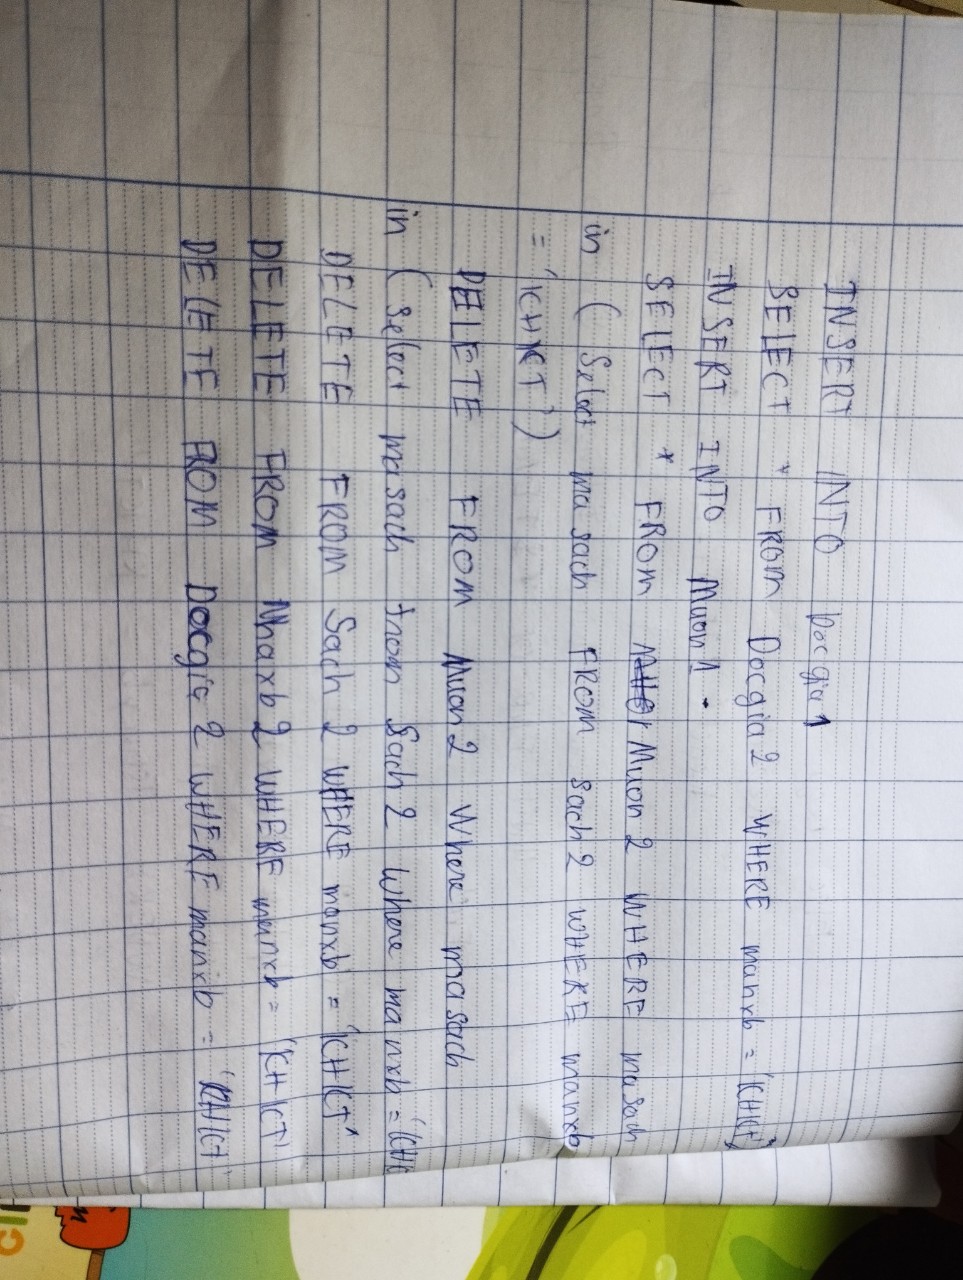 INSERT INTO Docgia1
SELECT * FROM Docgia2 WHERE manxb = 'KHKT'
INSERT INTO Muon1
SELECT * FROM Muon2 WHERE masach
in ( Select masach FROM Sach2 WHERE manxb
= 'KHKT' )
DELETE FROM Muon2 Where masach
in ( Select masach from Sach2 Where manxb = 'KHK
DELETE FROM Sach2 WHERE manxb = 'KHKT'
DELETE FROM Nhaxb2 WHERE manxb = 'KHKT'
DELETE FROM Docgia2 WHERE manxb = 'KHKT'